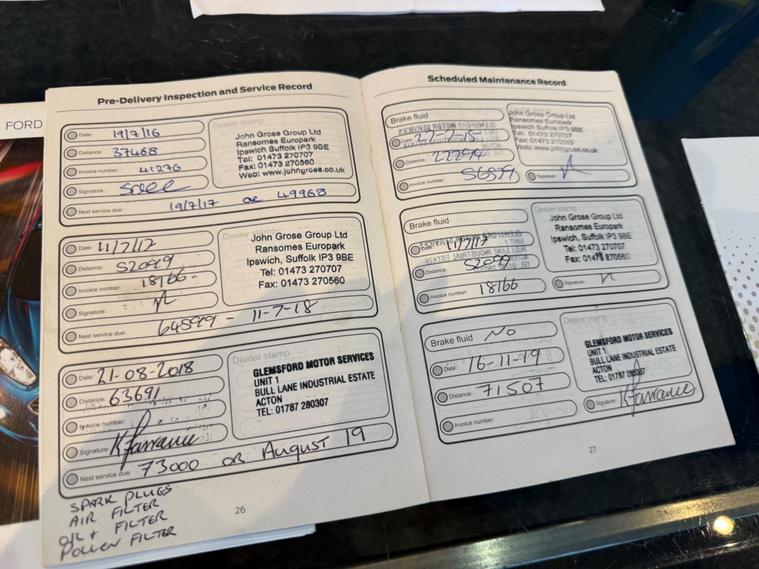 FORD
Pre-Delivery Inspection and Service Record
Date: 19/7/16
Distance: 37468
Invoice number: 41276
Signature:
Next service due: 19/7/17 or 49968
Dealer stamp
John Grose Group Ltd
Ransomes Europark
Ipswich Suffolk IP3 9BE
Tel: 01473 270707
Fax: 01473 270560
Web: www.johngrose.co.uk
Date: 11/7/17
Distance: 52099
Invoice number: 18766
Signature:
Next service due: 64599 - 11-7-18
Dealer stamp
John Grose Group Ltd
Ransomes Europark
Ipswich, Suffolk IP3 9BE
Tel: 01473 270707
Fax: 01473 270560
Date: 21-08-2018
Distance: 63691
Invoice number:
Signature: K Farrance
Next service due: 73000 OR August 19
Dealer stamp
GLEMSFORD MOTOR SERVICES
UNIT 1
BULL LANE INDUSTRIAL ESTATE
ACTON
TEL: 01787 280307
SPARK PLUGS
AIR FILTER
OIL + FILTER
POLLEN FILTER
26
Scheduled Maintenance Record
Brake fluid
Date:
Distance:
Invoice number:
Signature:
John Grose Group Ltd
Ransomes Europark
Ipswich Suffolk IP3 9BE
Tel: 01473 270707
Fax: 01473 270560
Web: www.johngrose.co.uk
Brake fluid
Date: 11/7/17
Distance: 52099
Invoice number: 18766
Signature:
Dealer stamp
John Grose Group Ltd
Ransomes Europark
Ipswich, Suffolk IP3 9BE
Tel: 01473 270707
Fax: 01473 270560
Brake fluid NO
Date: 16-11-19
Distance: 71507
Invoice number:
Signature: K Farrance
Dealer stamp
GLEMSFORD MOTOR SERVICES
UNIT 1
BULL LANE INDUSTRIAL ESTATE
ACTON
TEL: 01787 280307
27